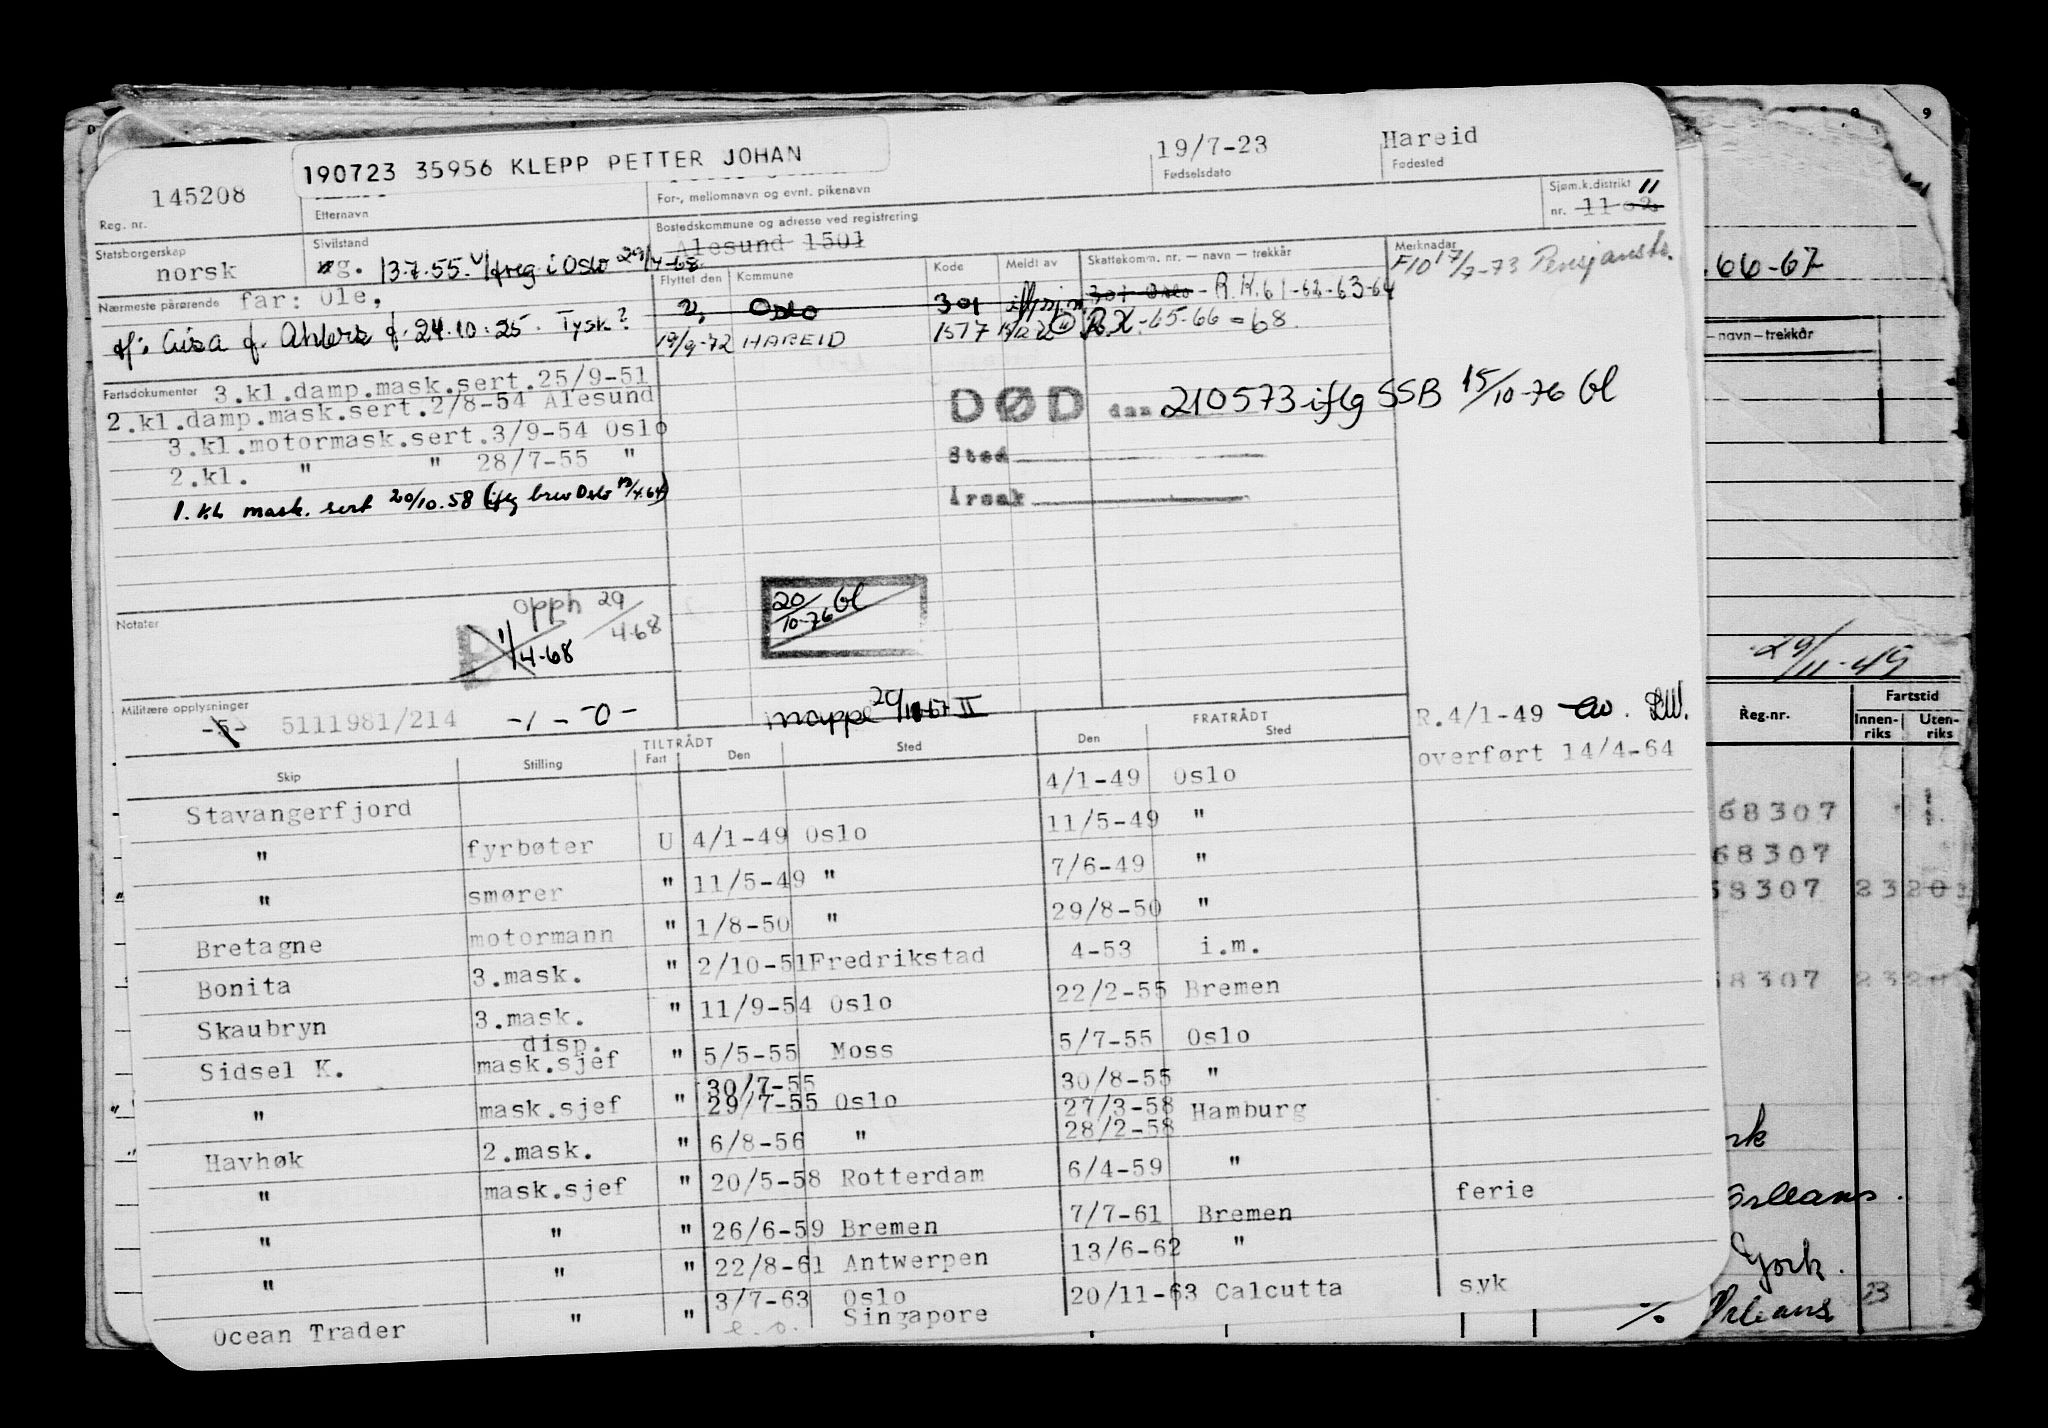 190723 35956 KLEPP PETTER JOHAN
19/7-23
Hareid
145208
Reg. nr.
Etternavn
For-, mellomnavn og evnt. pikenavn
Fødselsdato
Fødested
Statsborgerskap
norsk
Sivilstand
g. 13.7.55. i Oslo
Bostedskommune og adresse ved registrering
Ålesund 1501
Sjøm.k.distrikt 11
nr. 11 02
Nærmeste pårørende far: Ole,
f. Ahlers f. 24.10.25. Tysk?
Flyttet den Kommune Kode Meldt av Skattekom. nr. — navn — trekkår Merknader
Oslo 301 301 Oslo - R.K. 61-62-63-64
19/9-72 HAREID 1517 R.K. -65-66-68
F10 17/7-73
Fartsdokumenter 3.kl.damp.mask.sert.25/9-51
2.kl.damp.mask.sert.2/8-54 Ålesund
3.kl.motormask.sert.3/9-54 Oslo
2.kl. " " 28/7-55 "
1. kl. mask. sert 20/10.58 (iflg brev Oslo
DØD den 210573 iflg SSB 15/10-76 Gl
Sted
Årsak
Notater
opph 29/4-68
1/4-68
20/10-76 Gl
Militære opplysninger
5111981/214 -/-0-
mappe II
R.4/1-49
overført 14/4-64
TILTRÅDT FRATRÅDT
Skip Stilling Fart Den Sted Den Sted
Stavangerfjord 4/1-49 Oslo
" fyrbøter U 4/1-49 Oslo 11/5-49 "
" smører " 11/5-49 " 7/6-49 "
Bretagne motormann " 1/8-50 " 29/8-50 "
Bonita 3.mask. " 2/10-51 Fredrikstad 4-53 i.m.
Skaubryn 3.mask. " 11/9-54 Oslo 22/2-55 Bremen
disp.
Sidsel K. mask.sjef " 5/5-55 Moss 5/7-55 Oslo
30/7-55
" mask.sjef " 29/7-55 Oslo 30/8-55 "
27/3-58
Havhøk 2.mask. " 6/8-56 " 28/2-58 Hamburg
" mask.sjef " 20/5-58 Rotterdam 6/4-59 "
" " " 26/6-59 Bremen 7/7-61 Bremen ferie
" " " 22/8-61 Antwerpen 13/6-62 "
3/7-63 Oslo
Ocean Trader " " e.o. Singapore 20/11-63 Calcutta syk
%
8 9
66-67
—navn—trekkår
29/11-45
Reg.nr. Fartstid
Innen-riks Uten-riks
68307
68307
68307 23
68307 23
Orleans.
York.
Orleans 23